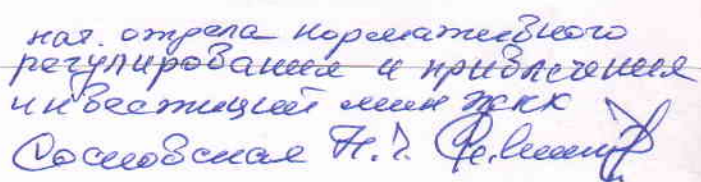 нач. отдела нормативного
регулирования и привлечения
инвестиций мин ЖКК
Сосновская Н.